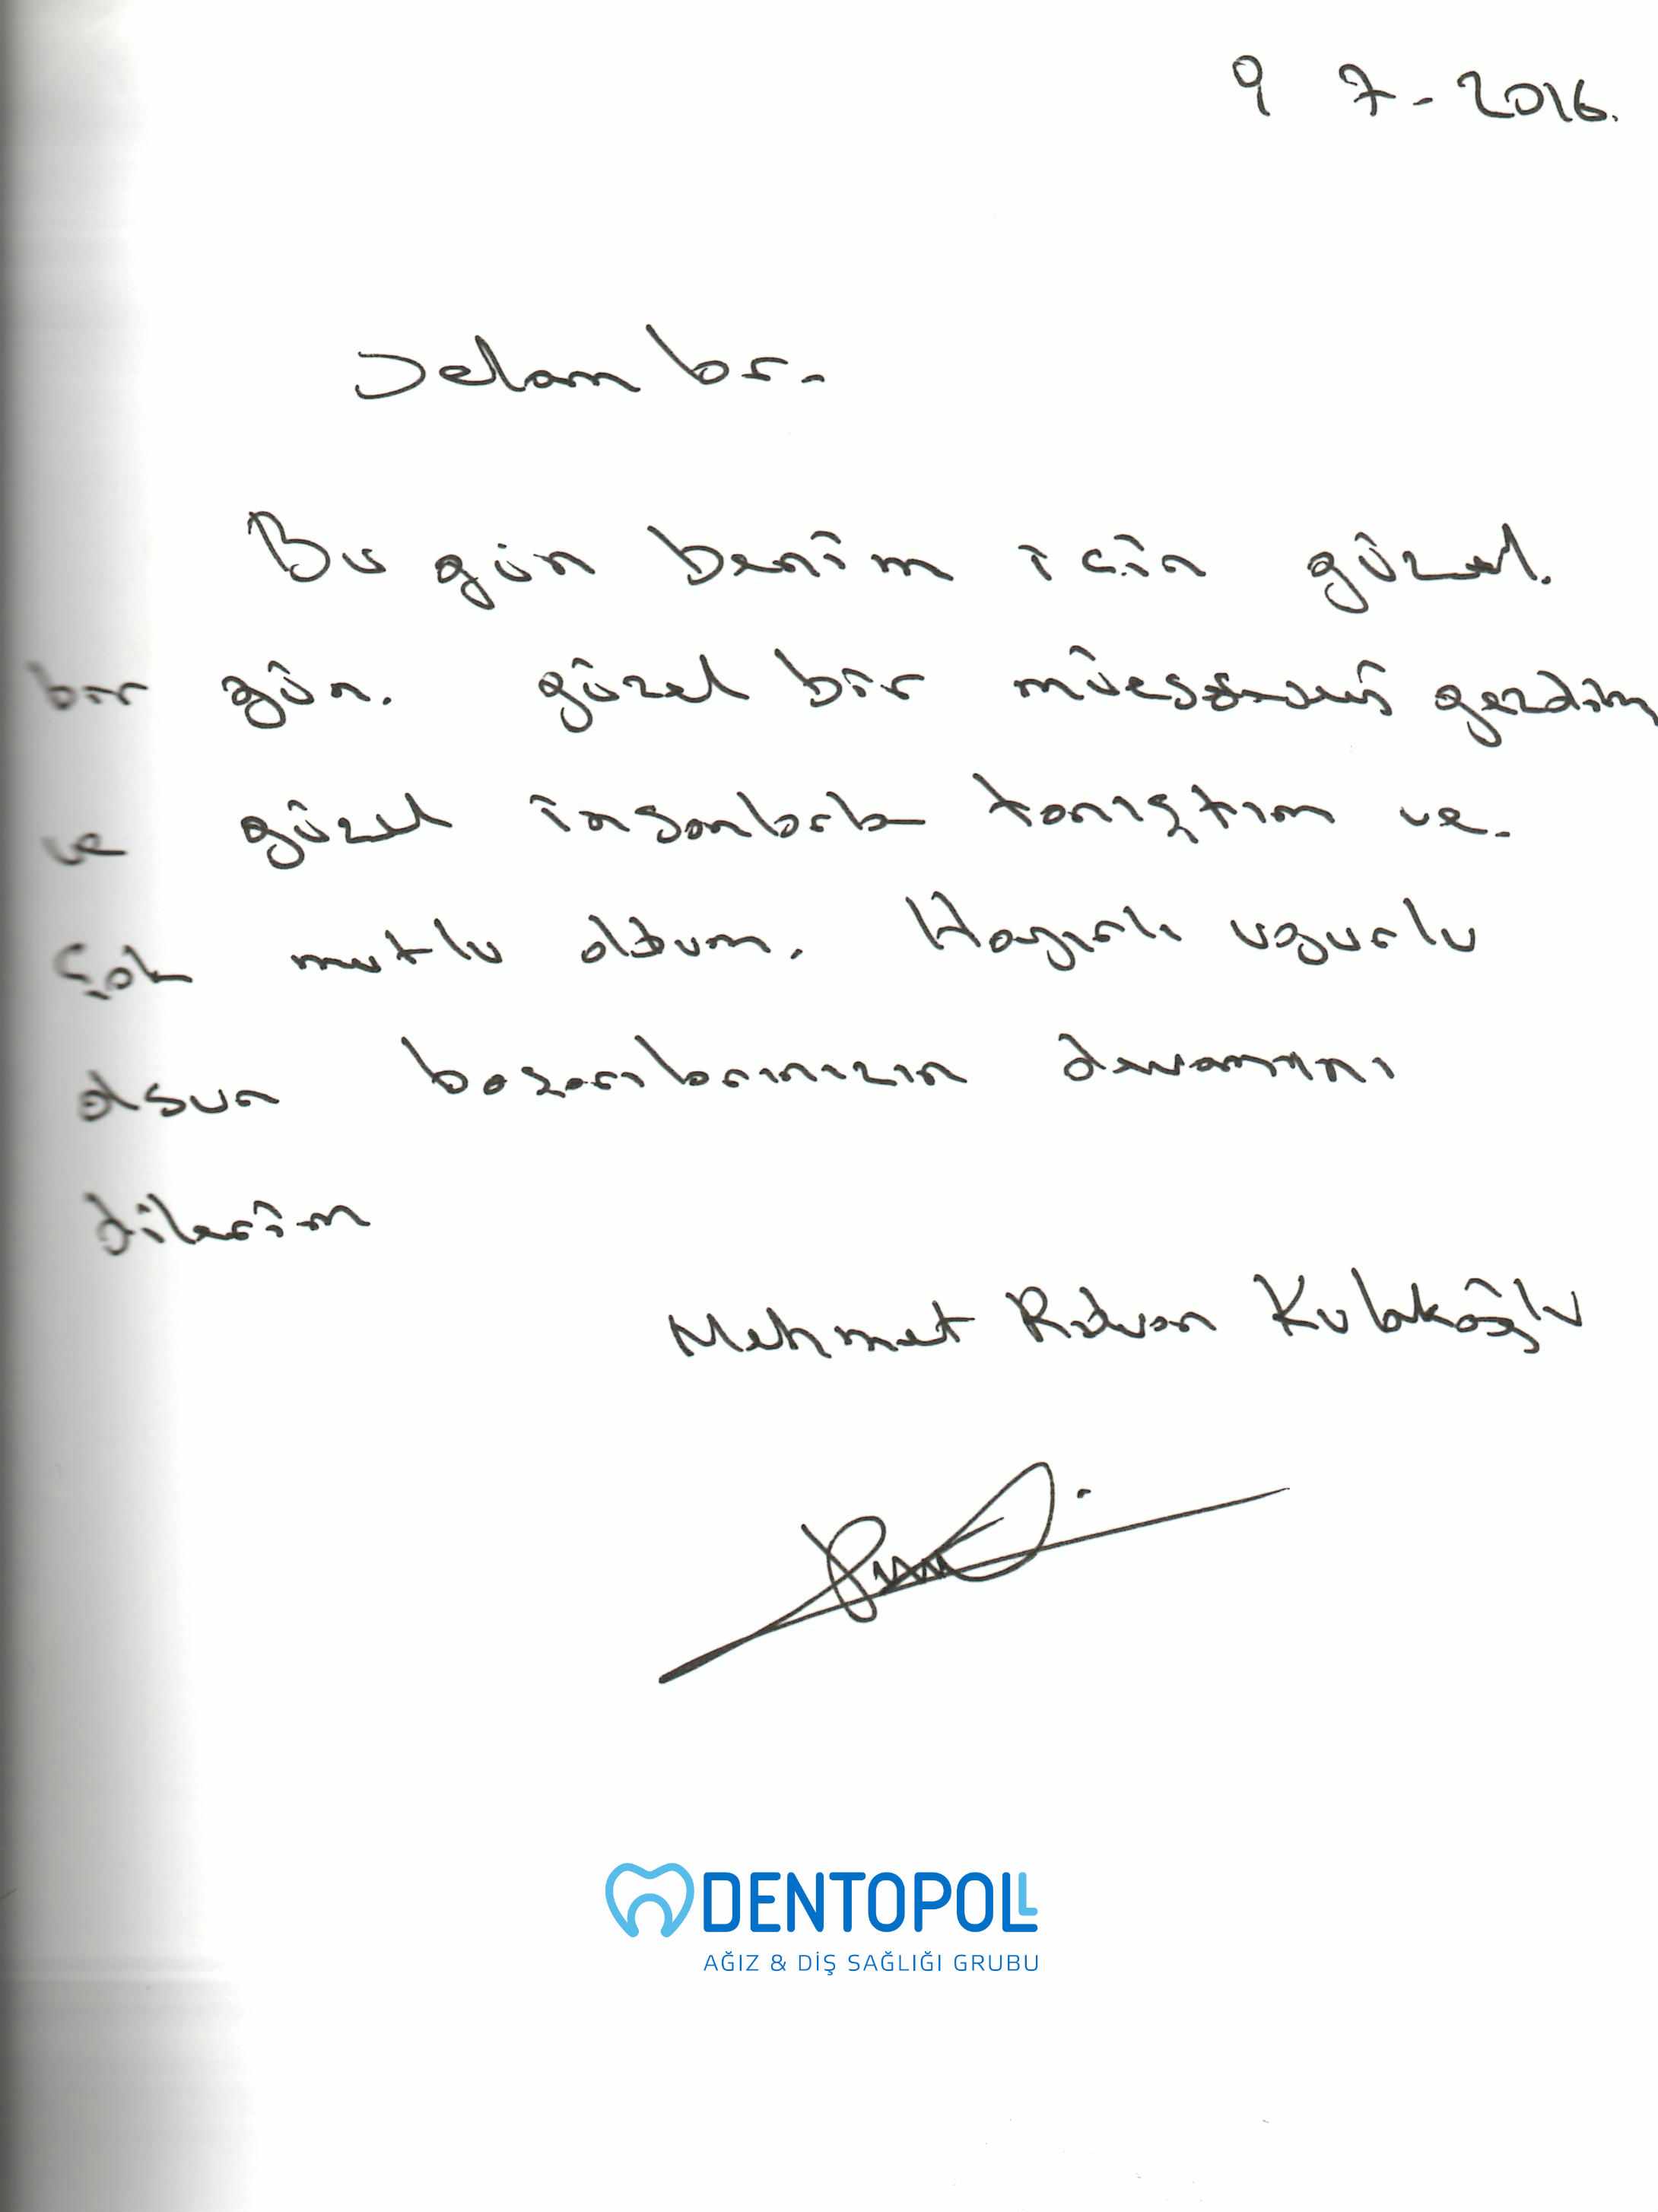 9 7-2016.
Selam br.
Bu gün benim için güzel.
bir gün. güzel bir gezdim
ve güzel insanlarla tanıştım ve.
Çok mutlu oldum. Hayırlı uğurlu
olsun başarılarınızın devamını
dilerim
Mehmet Rıdvan Kulakoğlu
DENTOPOLL
AĞIZ & DİŞ SAĞLIĞI GRUBU